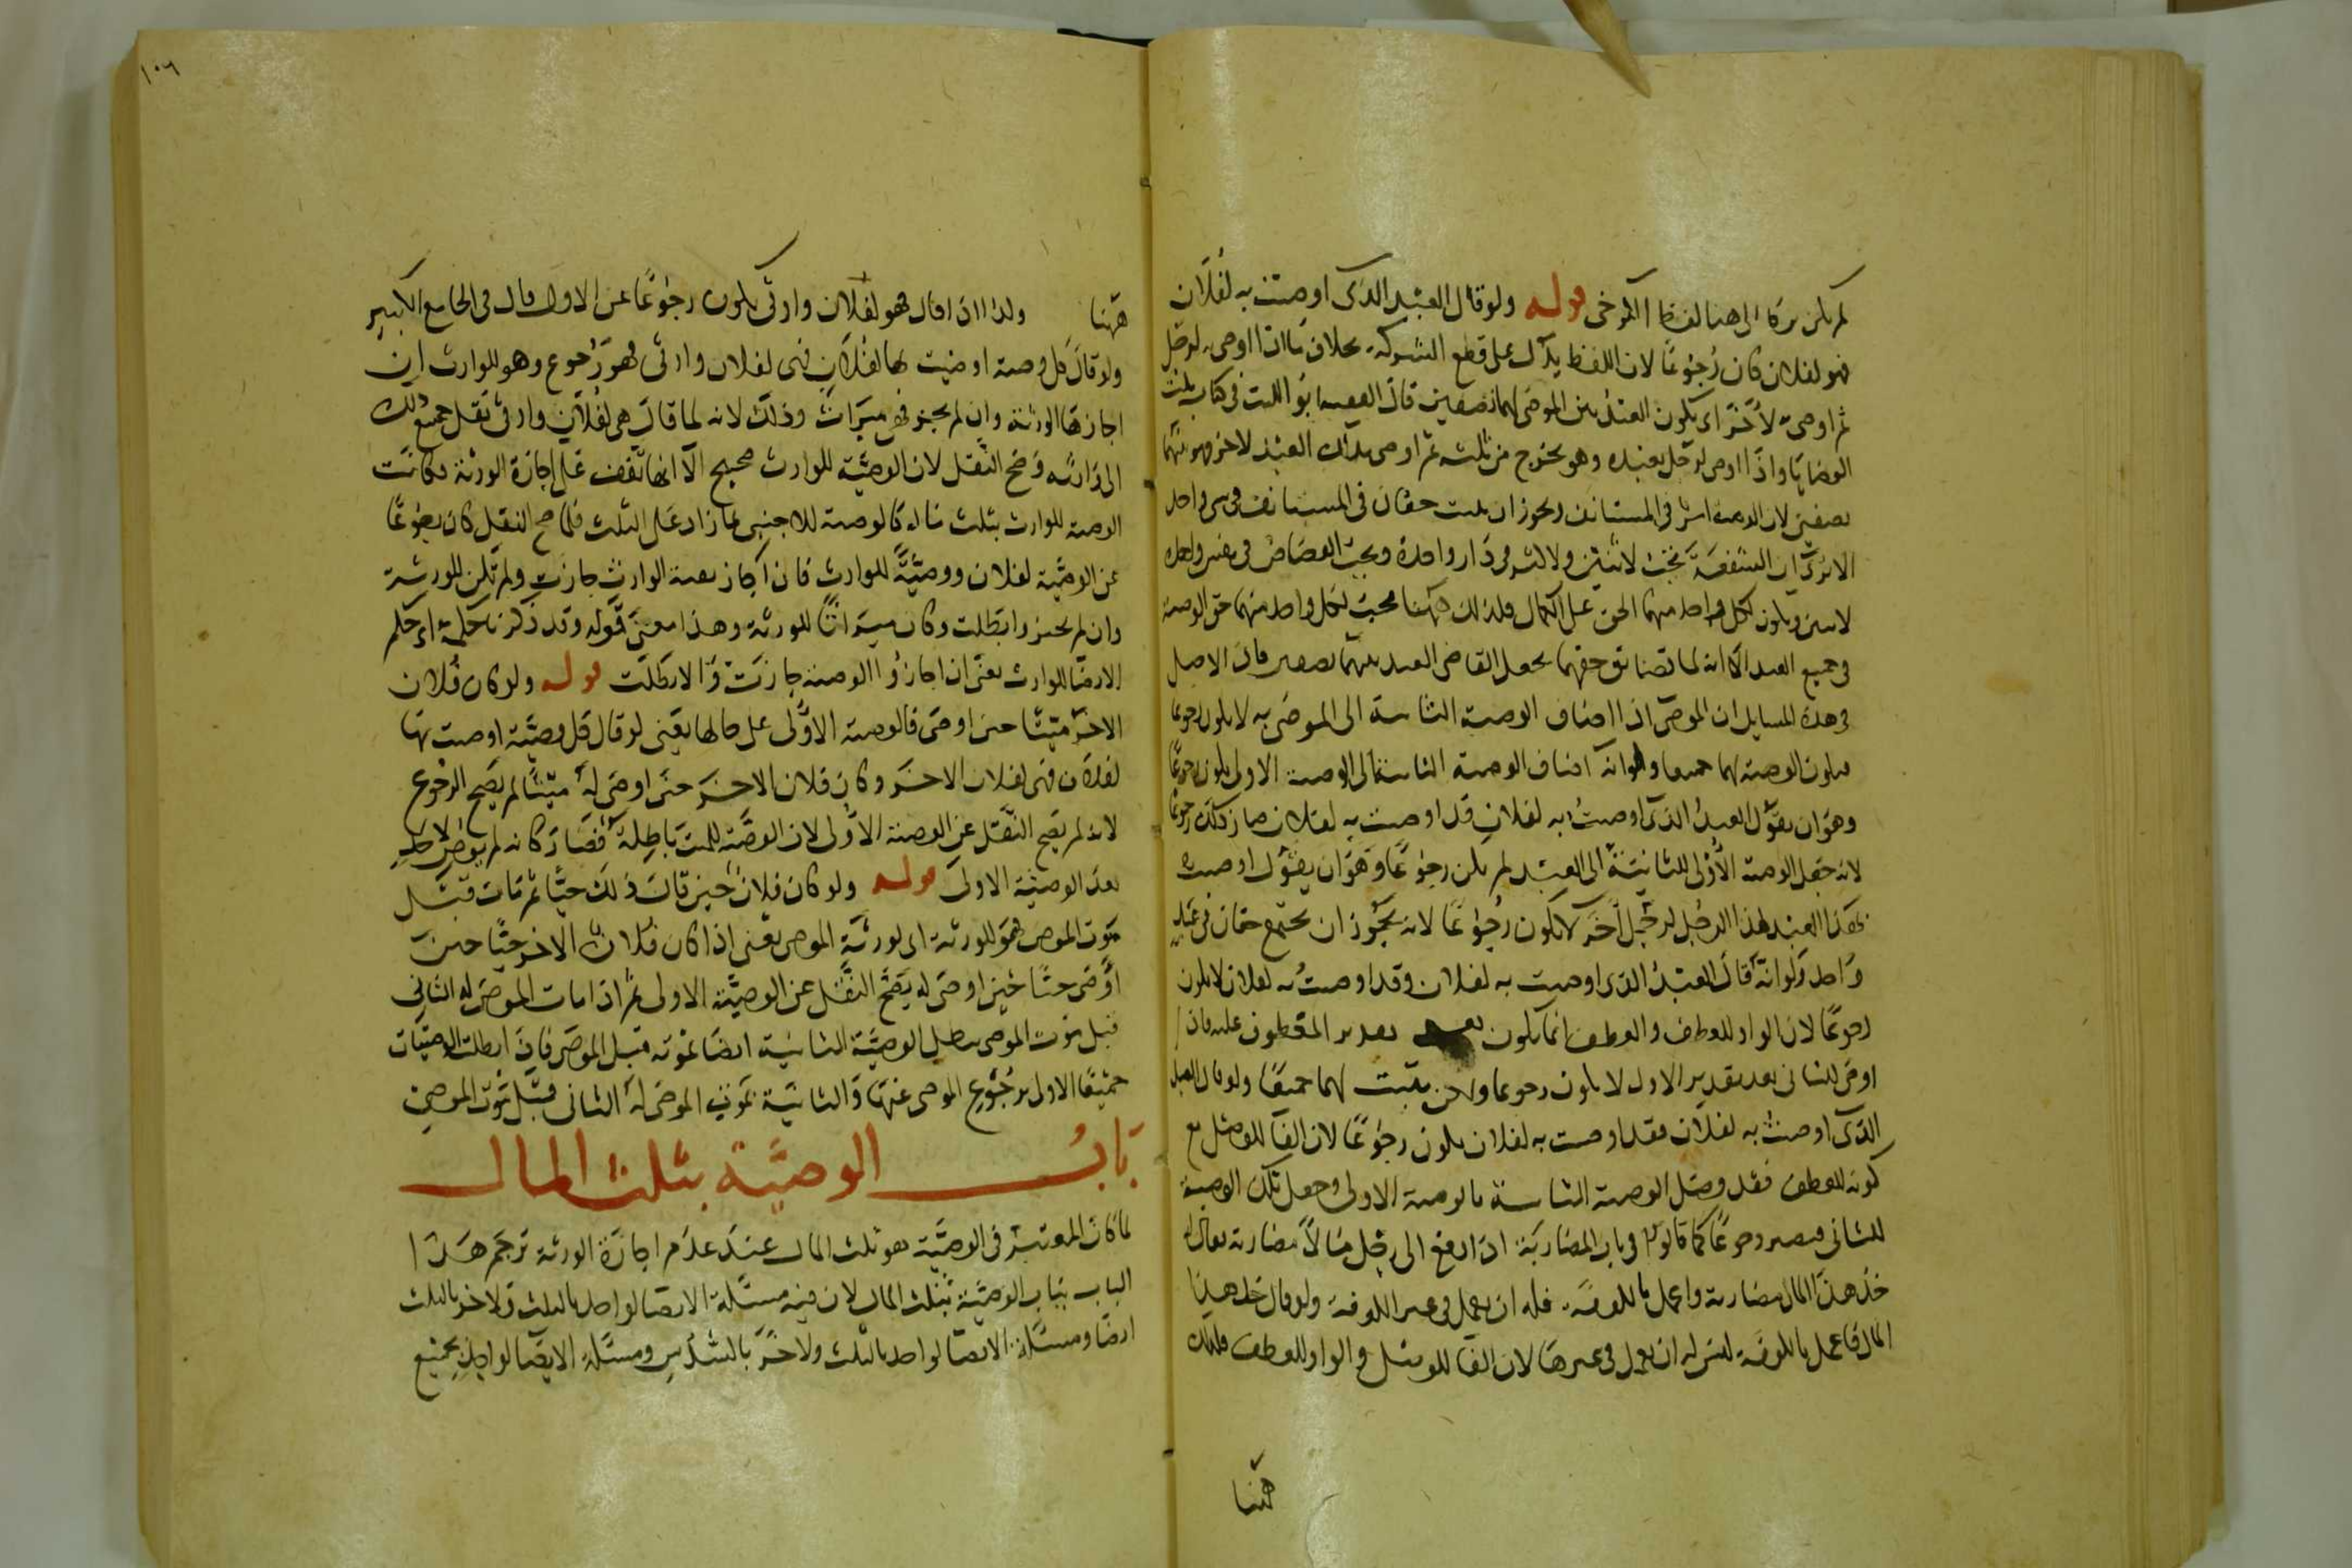 لم يكن تركا الى هنا لفظ الكرخى قوله ولو قال العبد الذى اوصيت به لفلان
فهو لفلان كان رجوعًا لان اللفظ يدل على قطع الشركة بخلاف ما اذا اوصى به لرجل
ثم اوصى به لآخر اى يكون العبد بين الموصى لهما نصفين قال الفقيه ابو الليث فى كتاب نكت
الوصايا واذا اوصى لرجل بعبده وهو يخرج من ثلثه ثم اوصى بذلك العبد لاخر فهو بينهما
نصفين لان الوصية فى المستانف ويجوز ان يثبت حقان فى المستانف فى شى واحد
الا ترى ان الشفعة تجب لاثنين ولاكثر فى دار واحدة ويجب القصاص فى نفس واحدة
لاثنين ويكون لكل واحد منهما الحق على الكمال فلذلك ههنا يجب لكل واحد منهما حق الوصية
فى جميع العبد الا انه لما تضايق حقهما يجعل القاضى العبد بينهما نصفين قال الاصل
فى هذه المسايل ان الموصى اذا اضاف الوصية الثانية الى الموصى به لا يكون رجوعا
فيكون الوصية لهما جميعا ولو انه اضاف الوصية الثانية الى الوصية الاولى يكون رجوعًا
وهو ان يقول العبد الذى اوصيت به لفلان قد اوصيت به لفلان صار ذلك رجوعًا
لانه جعل الوصية الاولى للثانية الى العبد لم يكن رجوعًا وهو ان يقول اوصيت
بهذا العبد لهذا الرجل لرجل آخر لا يكون رجوعًا لانه يجوز ان يجتمع حقان فى عبد
واحد ولو انه قال العبد الذى اوصيت به لفلان وقد اوصيت به لفلان لا يكون
رجوعًا لان الواو للعطف والعطف انما يكون بعد تقدير المعطوف عليه فان
اوصى للثانى بعد تقدير الاول لا يكون رجوعا ولكن يثبت لهما جميعًا ولو قال العبد
الذى اوصيت به لفلان فقد اوصيت به لفلان يكون رجوعًا لان الفا للوصل مع
كونه للعطف فقد وصل الوصية الثانية بالوصية الاولى وجعل تلك الوصية
للثانى فيصير رجوعًا كما قالوا فى باب المضاربة اذا دفع الى رجل مالًا مضاربة فقال له
خذ هذا المال مضاربة واعمل بالكوفة فله ان يعمل فى غير الكوفة ولو قال خذ هذا
المال فاعمل بالكوفة ليس له ان يعمل فى غيرها لان الفا للوصل والواو للعطف فكذلك
هٰهنا
١٠٦
هٰهنا ولذا اذا قال فهو لفلان وارثى يكون رجوعًا عن الاول قال فى الجامع الكبير
ولو قال كل وصية اوصيت بها لفلان فهى لفلان وارثى فهو رجوع وهو للوارث ان
اجازتها الورثة وان لم يجز فهى ميراث وذلك لانه لما قال هى لفلان وارثى نقل جميع ذلك
الى وارثه فصح النقل لان الوصية للوارث صحيح الا انها تقف على اجازة الورثة فكانت
الوصية للوارث بثلث ماله كالوصية للاجنبى بما زاد على الثلث فلما صح النقل كان رجوعًا
عن الوصية لفلان ووصية للوارث فان اجاز بقية الوارث جازت ولم تكن للورثة
وان لم يجيزوا بطلت وكان ميراثًا للورثة وهذا معنى قوله وقد ذكرنا حكمه اى حكم
الايصا للوارث يعنى ان اجازوا الوصية جازت والا بطلت قوله ولو كان فلان
الاخر ميتا حين اوصى فالوصية الاولى على حالها يعنى لو قال كل وصية اوصيت بها
لفلان فهى لفلان الاخر وكان فلان الاخر حين اوصى له ميتًا لم يصح الرجوع
لانه لم يصح النقل عن الوصية الاولى لان الوصية للميت باطلة فصار كانه لم يوص
بعد الوصية الاولى قوله ولو كان فلان حين قال ذلك حيًّا ثم مات قبل
موت الموصى فهو للورثة اى لورثة الموصى يعنى اذا كان فلان الاخر حيًّا حين
اوصى حيًّا حين اوصى له يصح النقل عن الوصية الاولى ثم اذا مات الموصى له الثانى
قبل موت الموصى يبطل الوصية الثانية ايضا بموته قبل الموصى فاذا بطلت الوصيتان
جميعًا الاولى برجوع الموصى عنها والثانية بموت الموصى له الثانى قبل موت الموصى
بابُ الوصيَّة بثلث المال
لما كان المعتبر فى الوصية هو ثلث المال عند عدم اجازة الورثة ترجم هذا
الباب بباب الوصية بثلث المال لان فيه مسئلة الايصا لواحد بالثلث ولاخر بالثلث
ايضًا ومسئلة الايصا لواحد بالثلث ولاخر بالسدس ومسئلة الايصا لواحد بجميع